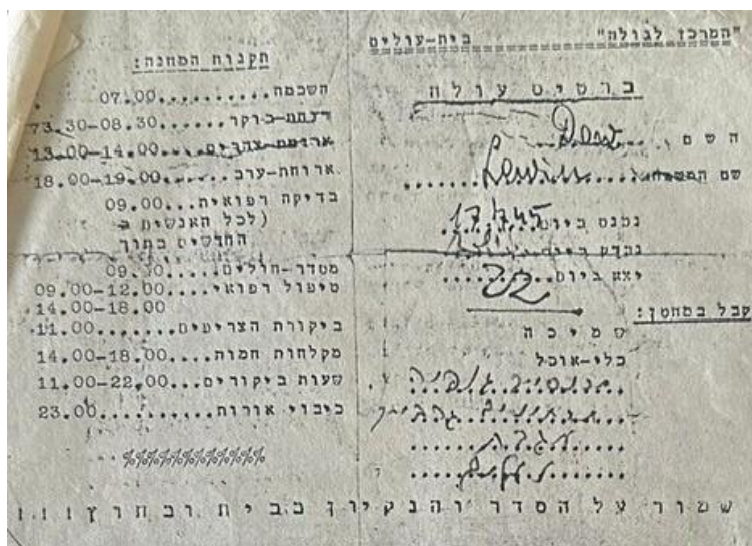 "המרכז לגולה" בית-עולים
כרטיס עולה
השם ...
שם המשפחה ... Levin
נכנס ביום 17.7.45
נבדק ביום
יצא ביום
קבל במחסן:
שמיכה
כלי-אוכל
מגבת
תקנות המחנה:
השכמה..........07.00
ארוחת-בוקר......73.30-08.30
ארוחת-צהרים...13.00-14.00
ארוחת-ערב...18.00-19.00
בדיקה רפואית...09.00
(לכל האנשים ב
החדשים בתוך
מסדר-חולים....09.30
טיפול רפואי....09.00-12.00
14.00-18.00
ביקורת הצריפים.......11.00
מקלחות חמות....14.00-18.00
שעות ביקורים...11.00-22.00
כיבוי אורות..........23.00
%%%%%%%%%%%%
שמור על הסדר והנקיון בבית ובחוץ!!!